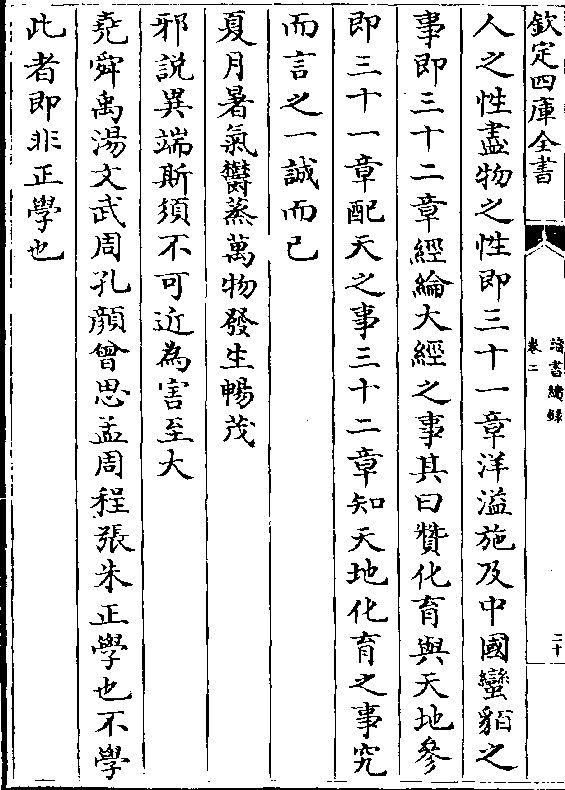 欽定四庫全書
讀書續録
卷二
二十
人之性盡物之性即三十一章洋溢施及中國蠻貊之
事即三十二章經綸大經之事其曰贊化育與天地參
即三十一章配天之事三十二章知天地化育之事究
而言之一誠而已
夏月暑氣欝蒸萬物發生暢茂
邪説異端斯須不可近為害至大
堯舜禹湯文武周孔顔曾思孟周程張朱正學也不學
此者即非正學也